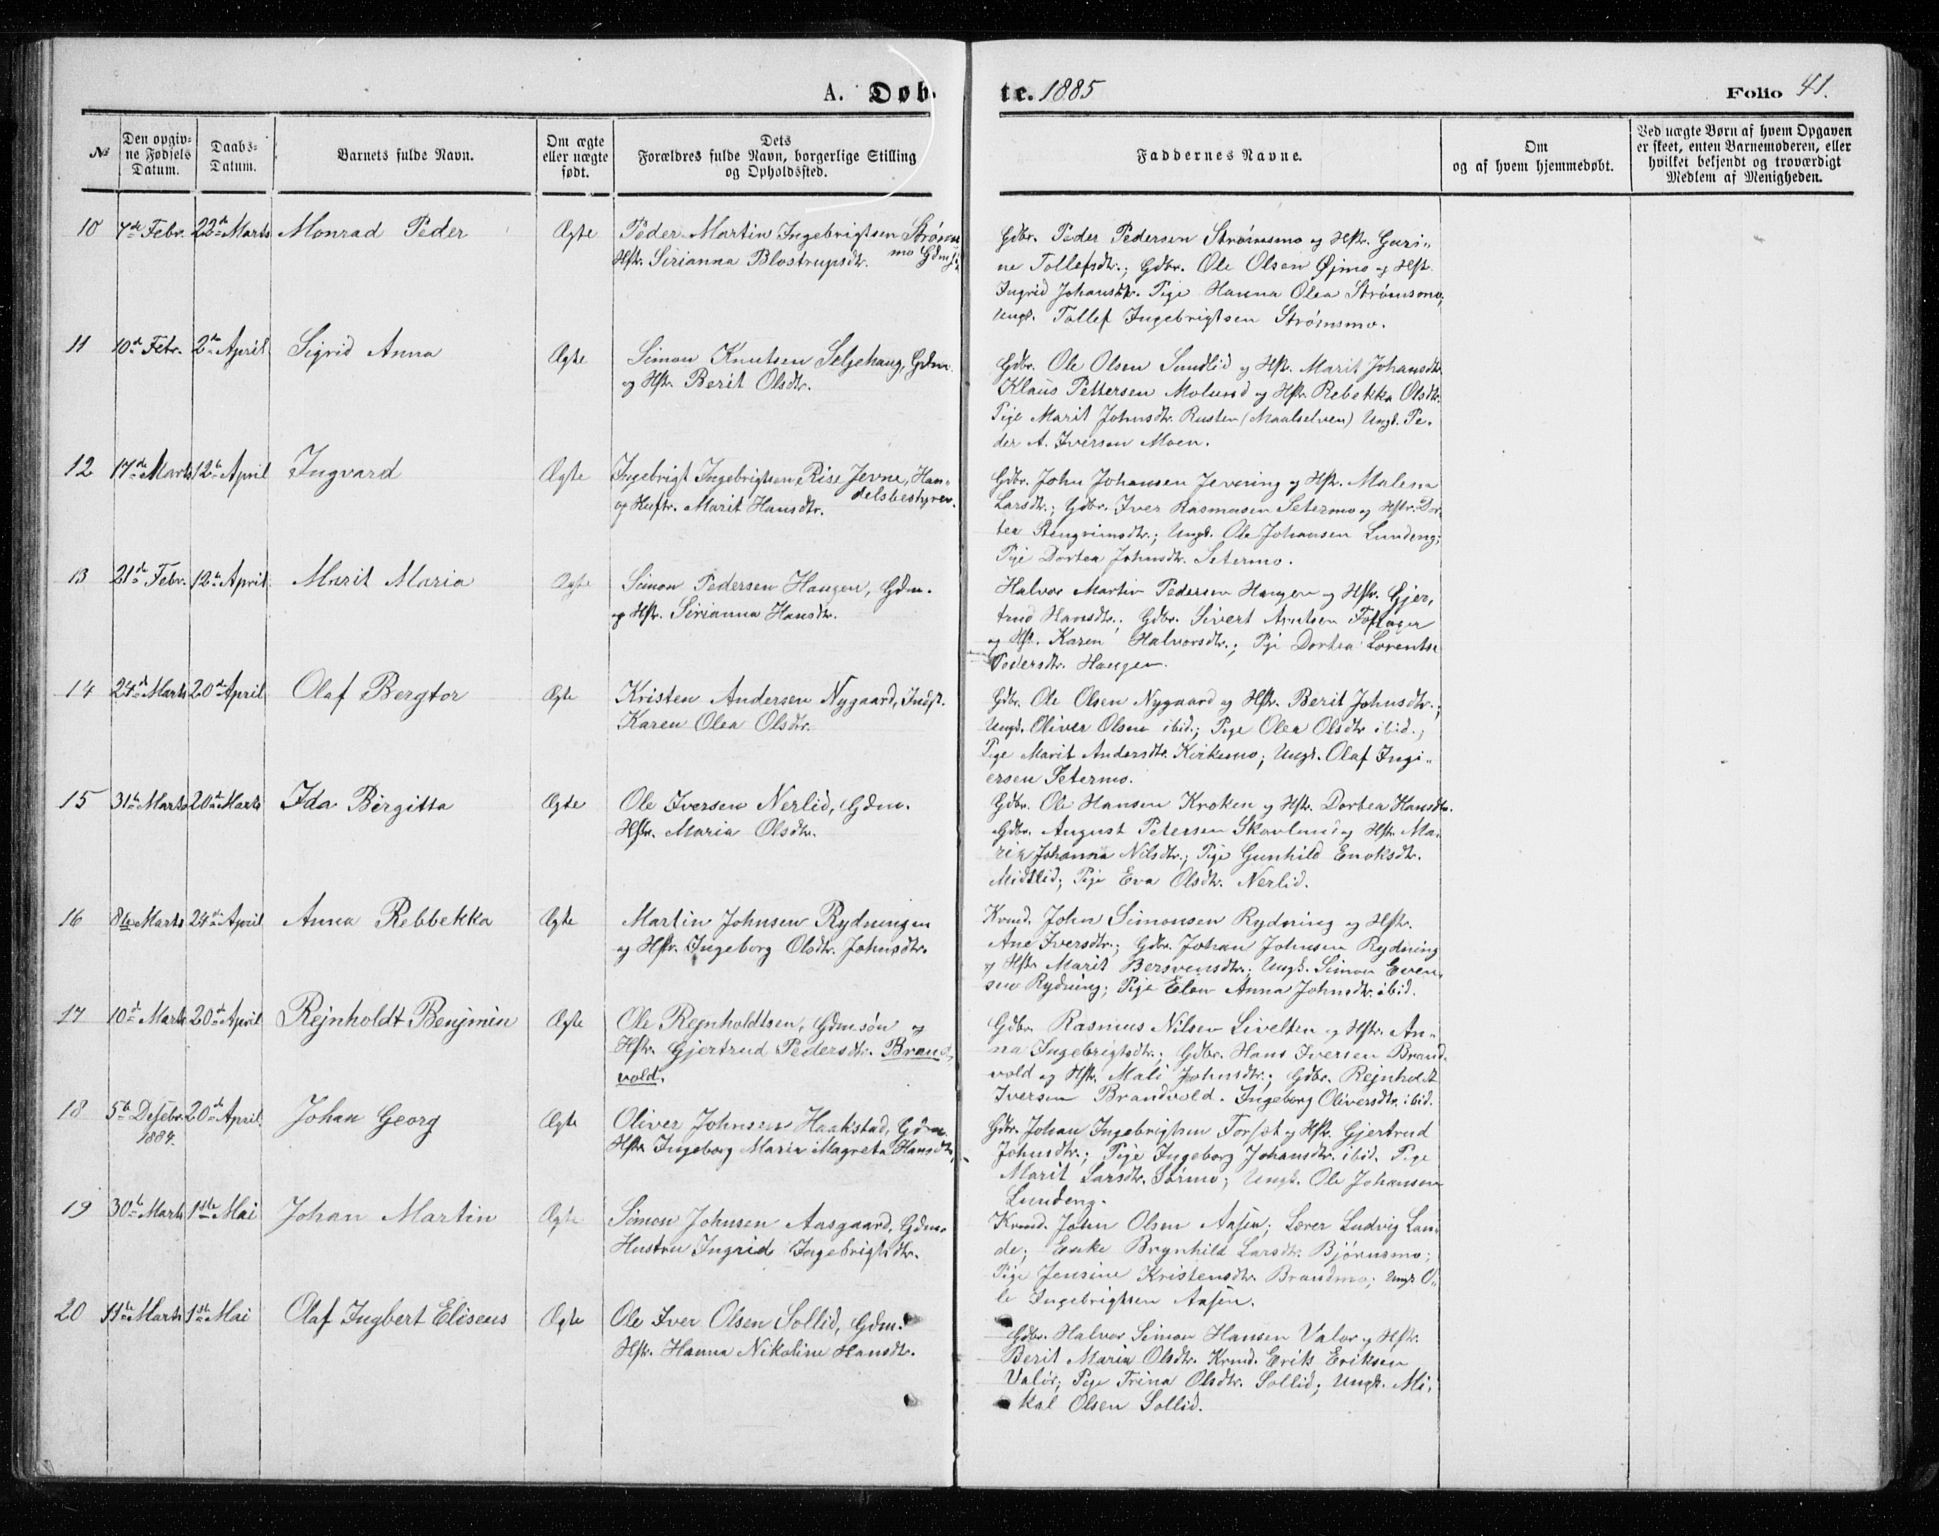 A. Døb-
te. 1885
Folio 41.
№
Den opgiv-
ne Fødsels
Datum.
Daabs-
Datum.
Barnets fulde Navn.
Om ægte
eller uægte
født.
Dets
Forældres fulde Navn, borgerlige Stilling
og Opholdssted.
Faddernes Navne.
Om
og af hvem hjemmedøbt.
Ved uægte Børn af hvem Opgaven
er skeet, enten Barnemoderen, eller
hvilket bekjendt og troværdigt
Medlem af Menigheden.
10 7de Febr. 22de Marts Monrad Peder Ægte
Peder Martin Ingebrigtsen Strøms-
mo Gdm.
Hstr. Sirianna Blostrupsdtr.
Gdbr. Peder Pedersen Strømsmo og Hstr. Guri-
ne Tollefsdtr.; Gdbr. Ole Olsen Øjmo og Hstr.
Ingrid Johansdtr. Pige Hanna Olea Strømsmo,
Ungk. Tollef Ingebrigtsen Strømsmo.
11 10de Febr. 2den April. Sigrid Anna Ægte
Simon Knutsen Seljehaug, Gdm.
og Hstr. Berit Olsdtr.
Gdbr. Ole Olsen Sundlid og Hstr. Marit Johansdtr.
Klaus Pettersen Molund og Hstr. Rebekka Olsdtr.
Pige Marit Johnsdtr. Rusten (Maalselven) Ungk. Pe-
der A. Iversen Moen.
12 17de Marts 12te April Ingvard Ægte
Ingebrigt Ingebrigtsen Rise Jevne, Han-
delsbestyrer.
og Hustr. Marit Hansdtr.
Gdbr. John Johansen Jevning og Hstr. Malena
Larsdtr.; Gdbr. Iver Rasmusen Setermo og Hstr. Dor-
tea Stengrimsdtr.; Ungk. Ole Johansen Lundeng;
Pige Dortea Johnsdtr. Setermo.
13 21de Febr. 12te April. Marit Maria Ægte
Simon Pedersen Haugen, Gdm.
og Hstr. Sirianna Hansdtr.
Halvor Martin Pedersen Haugen og Hstr. Gjer-
trud Hansdtr.; Gdbr. Sivert Arntsen Foslager
og Hst. Karen Halvorsdtr.; Pige Dortea Lorentse
Pedersdtr. Haugen.
14 24de Marts 20de April Olaf Bergtor Ægte
Kristen Andersen Nygaard, Indst.
Karen Olea Olsdtr.
Gdbr. Ole Olsen Nygaard og Hstr. Berit Johnsdtr.;
Ungk. Oliver Olsen ibid.; Pige Olea Olsdtr ibid.;
Pige Marit Andersdtr. Kirkemo; Ungk. Olaf Ingi-
ersen Setermo.
15 31te Marts 20de Marts Ida Birgitta Ægte
Ole Iversen Nerlid, Gdm.
Hstr. Maria Olsdtr.
Gdbr. Ole Hansen Kroken og Hstr. Dortea Hansdtr.
Gdbr. August Petersen Skavlund og Hstr. Ma-
ria Johanna Nilsdtr.; Pige Gunhild Enoksdtr.
Midtlid; Pige Eva Olsdtr. Nerlid.
16 8de Marts 24de April Anna Rebbekka Ægte
Martin Johnsen Rydningen
og Hstr. Ingeborg Olsdtr. Johnsdtr.
Kvmd. John Simonsen Rydning og Hstr.
Ane Iversdtr.; Gdbr. Johan Johnsen Rydning
og Hstr. Marit Bersvensdtr.; Ungk. Simon Even-
sen Rydning; Pige Elen Anna Johnsdtr. ibid.
17 10de Marts 20de April Rejnholdt Benjmin Ægte
Ole Rejnholdtsen, Gdmsøn og
Hstr. Gjertrud Pedersdtr. Brand-
vold.
Gdbr. Rasmus Nilsen Livelten og Hstr. An-
na Ingebrigtsdtr.; Gdbr. Hans Iversen Brand-
vold og Hstr. Mali Johnsdtr.; Gdbr. Rejnholdt
Iversen Brandvold. Ingeborg Oliversdtr. ibid.
18 5te Desebr. 1884. 20de April Johan Georg Ægte
Oliver Johnsen Haakstad, Gdm.
Hstr. Ingeborg Maria Magreta Hansdtr.
Gdbr. Johan Ingebrigtsen Forset og Hstr. Gjertrud
Johnsdtr.; Pige Ingeborg Johansdtr. ibid. Pige
Marit Larsdtr. Sørmo; Ungk. Ole Johansen
Lundeng.
19 30te Marts 1ste Mai Johan Martin Ægte
Simon Johnsen Aasgaard, Gdm.
Hustru Ingrid Ingebrigtsdtr.
Kvmd. John Olsen Aasen; Lærer Ludvig Lun-
de; Enke Brynhild Larsdtr. Bjørnsmo;
Pige Jensine Kristensdtr. Brandmo; Ungk O-
le Ingebrigtsen Aasen.
20 11te Marts 1ste Mai Olaf Ingbert Eliseus Ægte
Ole Iver Olsen Sollid, Gdm.
Hstr. Hanna Nikoline Hansdtr.
Gdbr. Halvor Simon Hansen Valør og Hstr.
Berit Maria Olsdtr. Kvmd. Erik Eriksen
Valør; Pige Trina Olsdtr. Sollid; Ungk. Mi-
kal Olsen Sollid.